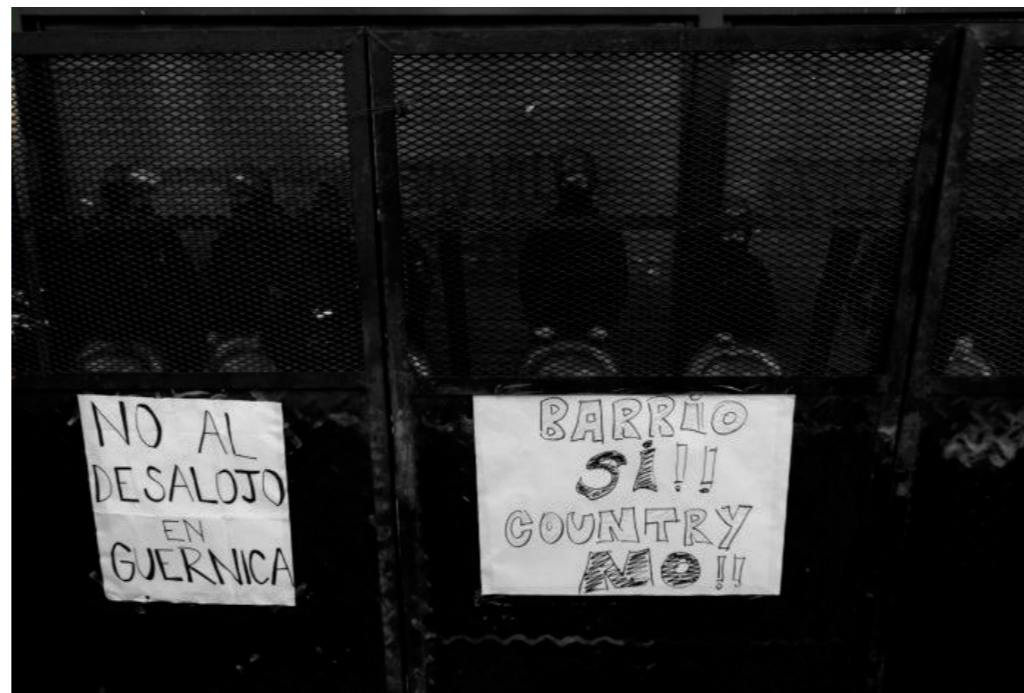 NO AL
DESALOJO
EN
GUERNICA
BARRIO
SÍ!!
COUNTRY
NO!!